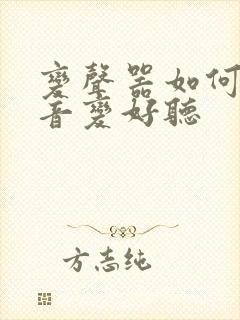 變聲器如何
音變好聽
方志纯